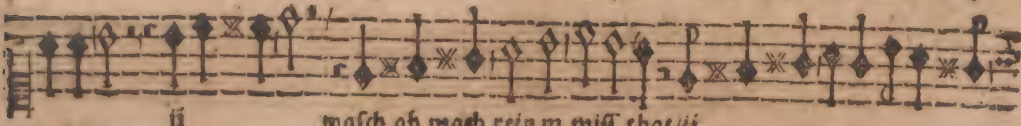 ij wasch ab mach rein m miss that ij